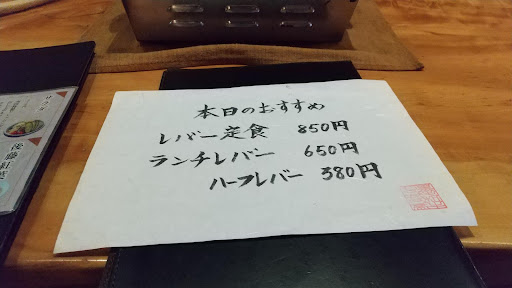 本日のおすすめ
レバー定食 850円
ランチレバー 650円
ハーフレバー 380円
サラダ